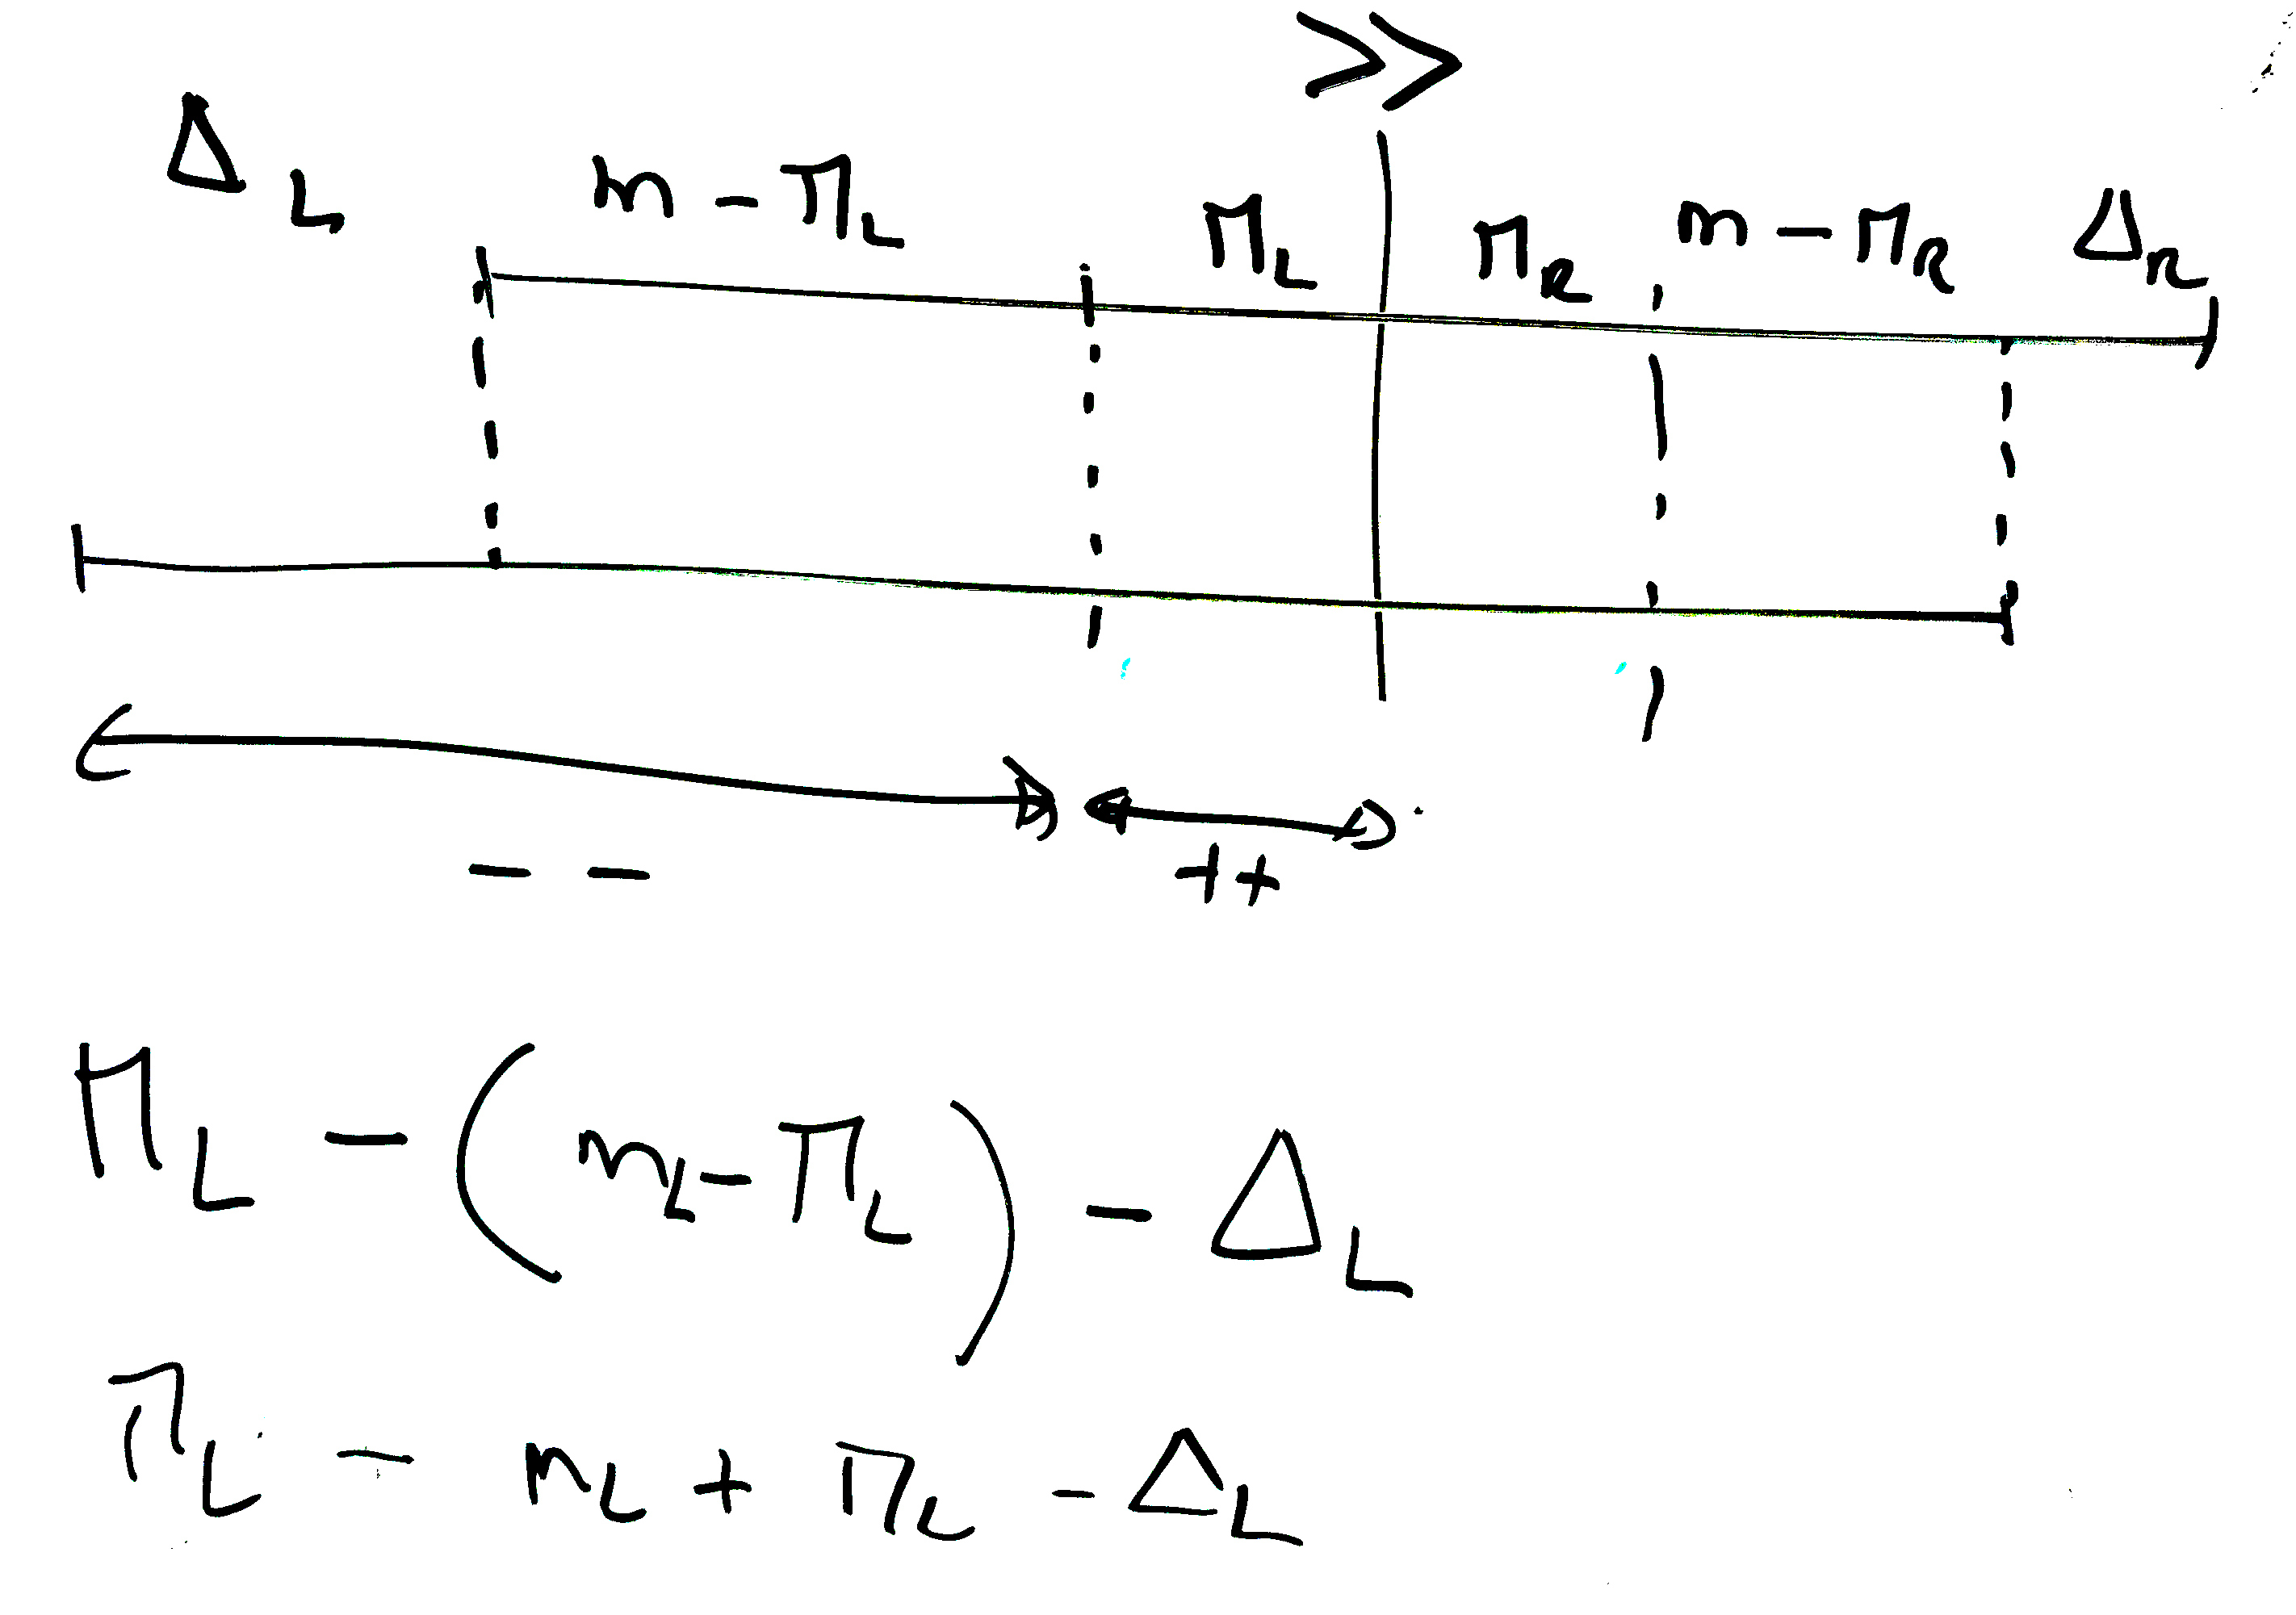 >>
Δ_L m - Π_L Π_L Π_R m - Π_R Δ_R
- - ++
Π_L - (m_L - Π_L) - Δ_L
Π_L - m_L + Π_L - Δ_L